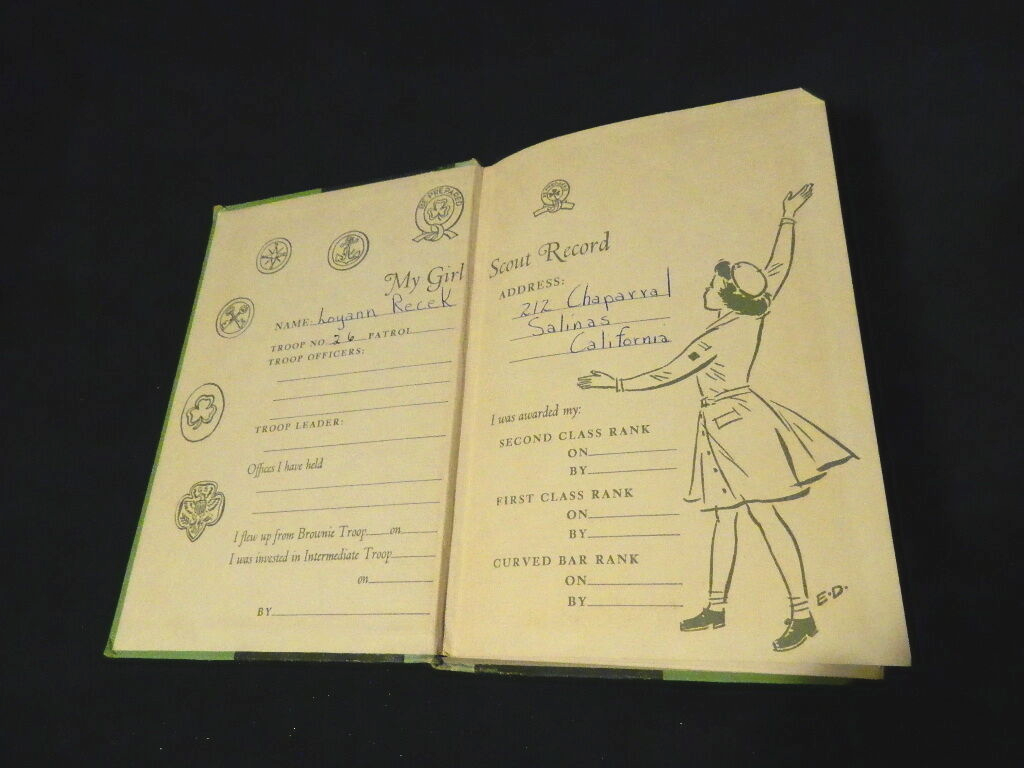 BE PREPARED
My Girl
NAME: Loyann Recek
TROOP NO. 26 PATROL
TROOP OFFICERS:
TROOP LEADER:
Offices I have held
I flew up from Brownie Troop on
I was invested in Intermediate Troop
on
BY
BE PREPARED
Scout Record
ADDRESS:
212 Chaparral
Salinas
California
I was awarded my:
SECOND CLASS RANK
ON
BY
FIRST CLASS RANK
ON
BY
CURVED BAR RANK
ON
BY
E.D.